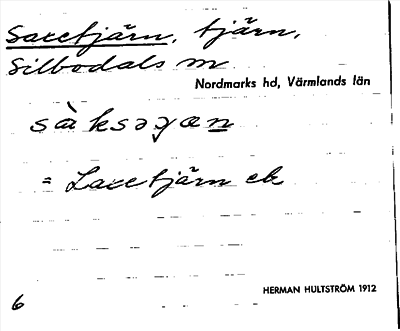 Saxetjärn, tjärn,
Silbodals sn
Nordmarks hd, Värmlands län
= Laxetjärn ek
HERMAN HULTSTRÖM 1912
6